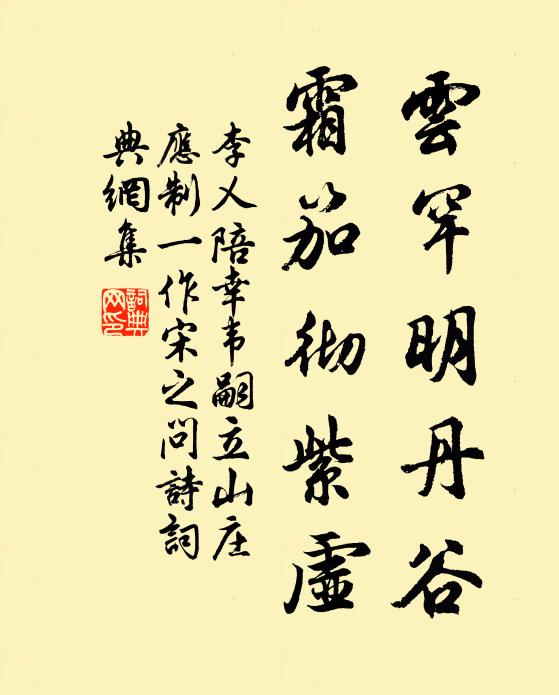 雲罕明丹谷
霜笳彻紫虛
李乂陪幸韦嗣立山庄
應制一作宋之问詩詞
典網集
詞典
网印